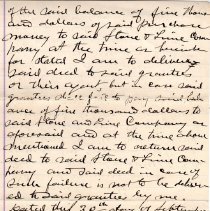 of the said balance of five thous-
and dollars of said purchase
money to said Stone & Lime Com-
pany at the time as herein be-
fore stated I am to deliver
said deed to said grantees
or their agent, but in case said
grantees shall fail to pay said bal-
ance of five thousand dollars to
said Stone and Lime Company as
aforesaid and at the time above
mentioned I am to return said
deed to said Stone & Lime Com-
pany and said deed in case of
such failure is not to be deliver-
ed to said grantees by me.
Dated this 30th day of Septemb